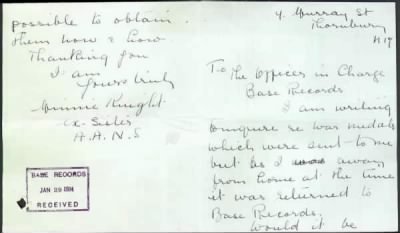 4, Murray St
Thornbury
N 17
To The Officer in Charge
Base Records
I am writing
to inquire re war medals
which were sent to me
but as I was away
from home at the time
it was returned to
Base Records.
Would it be
possible to obtain
them now & how
Thanking you
I am
Yours truly
Minnie Knight
ex-Sister
A.A.N.S
BASE RECORDS
JAN 29 1934
RECEIVED